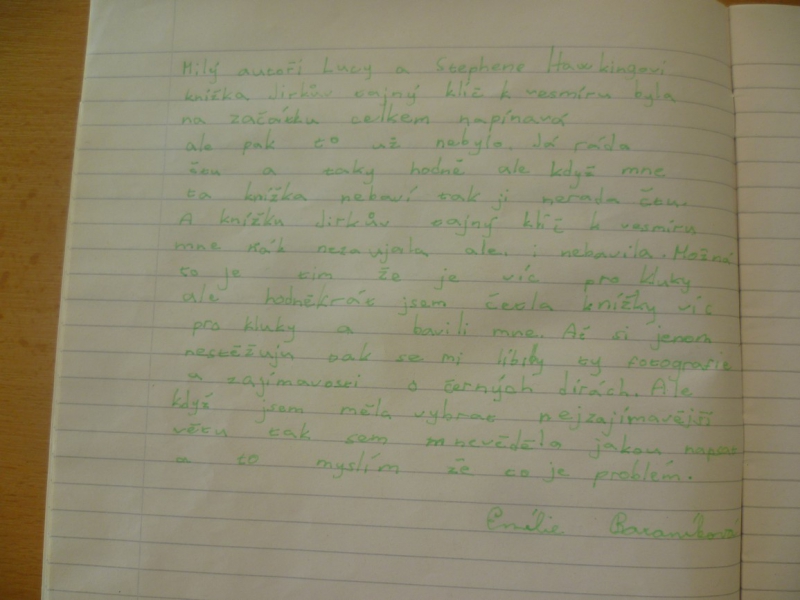 Milý autoři Lucy a Stephene Hawkingovi
knížka Jirkův tajný klíč k vesmíru byla
na začátku celkem napínavá
ale pak to už nebylo. Já ráda
čtu a taky hodně ale když mne
ta knížka nebaví tak ji nerada čtu.
A knížku Jirkův tajný klíč k vesmíru
mne nezaujala ale i nebavila. Možná
to je tím že je víc pro kluky
ale hodněkrát jsem četla knížky víc
pro kluky a bavili mne. Ať si jenom
nestěžuju tak se mi libily ty fotografie
a zajímavosti o černých dírách. Ale
když jsem měla vybrat nejzajímavější
větu tak sem nevěděla jakou napsat
a to myslím že to je problém.
Emílie